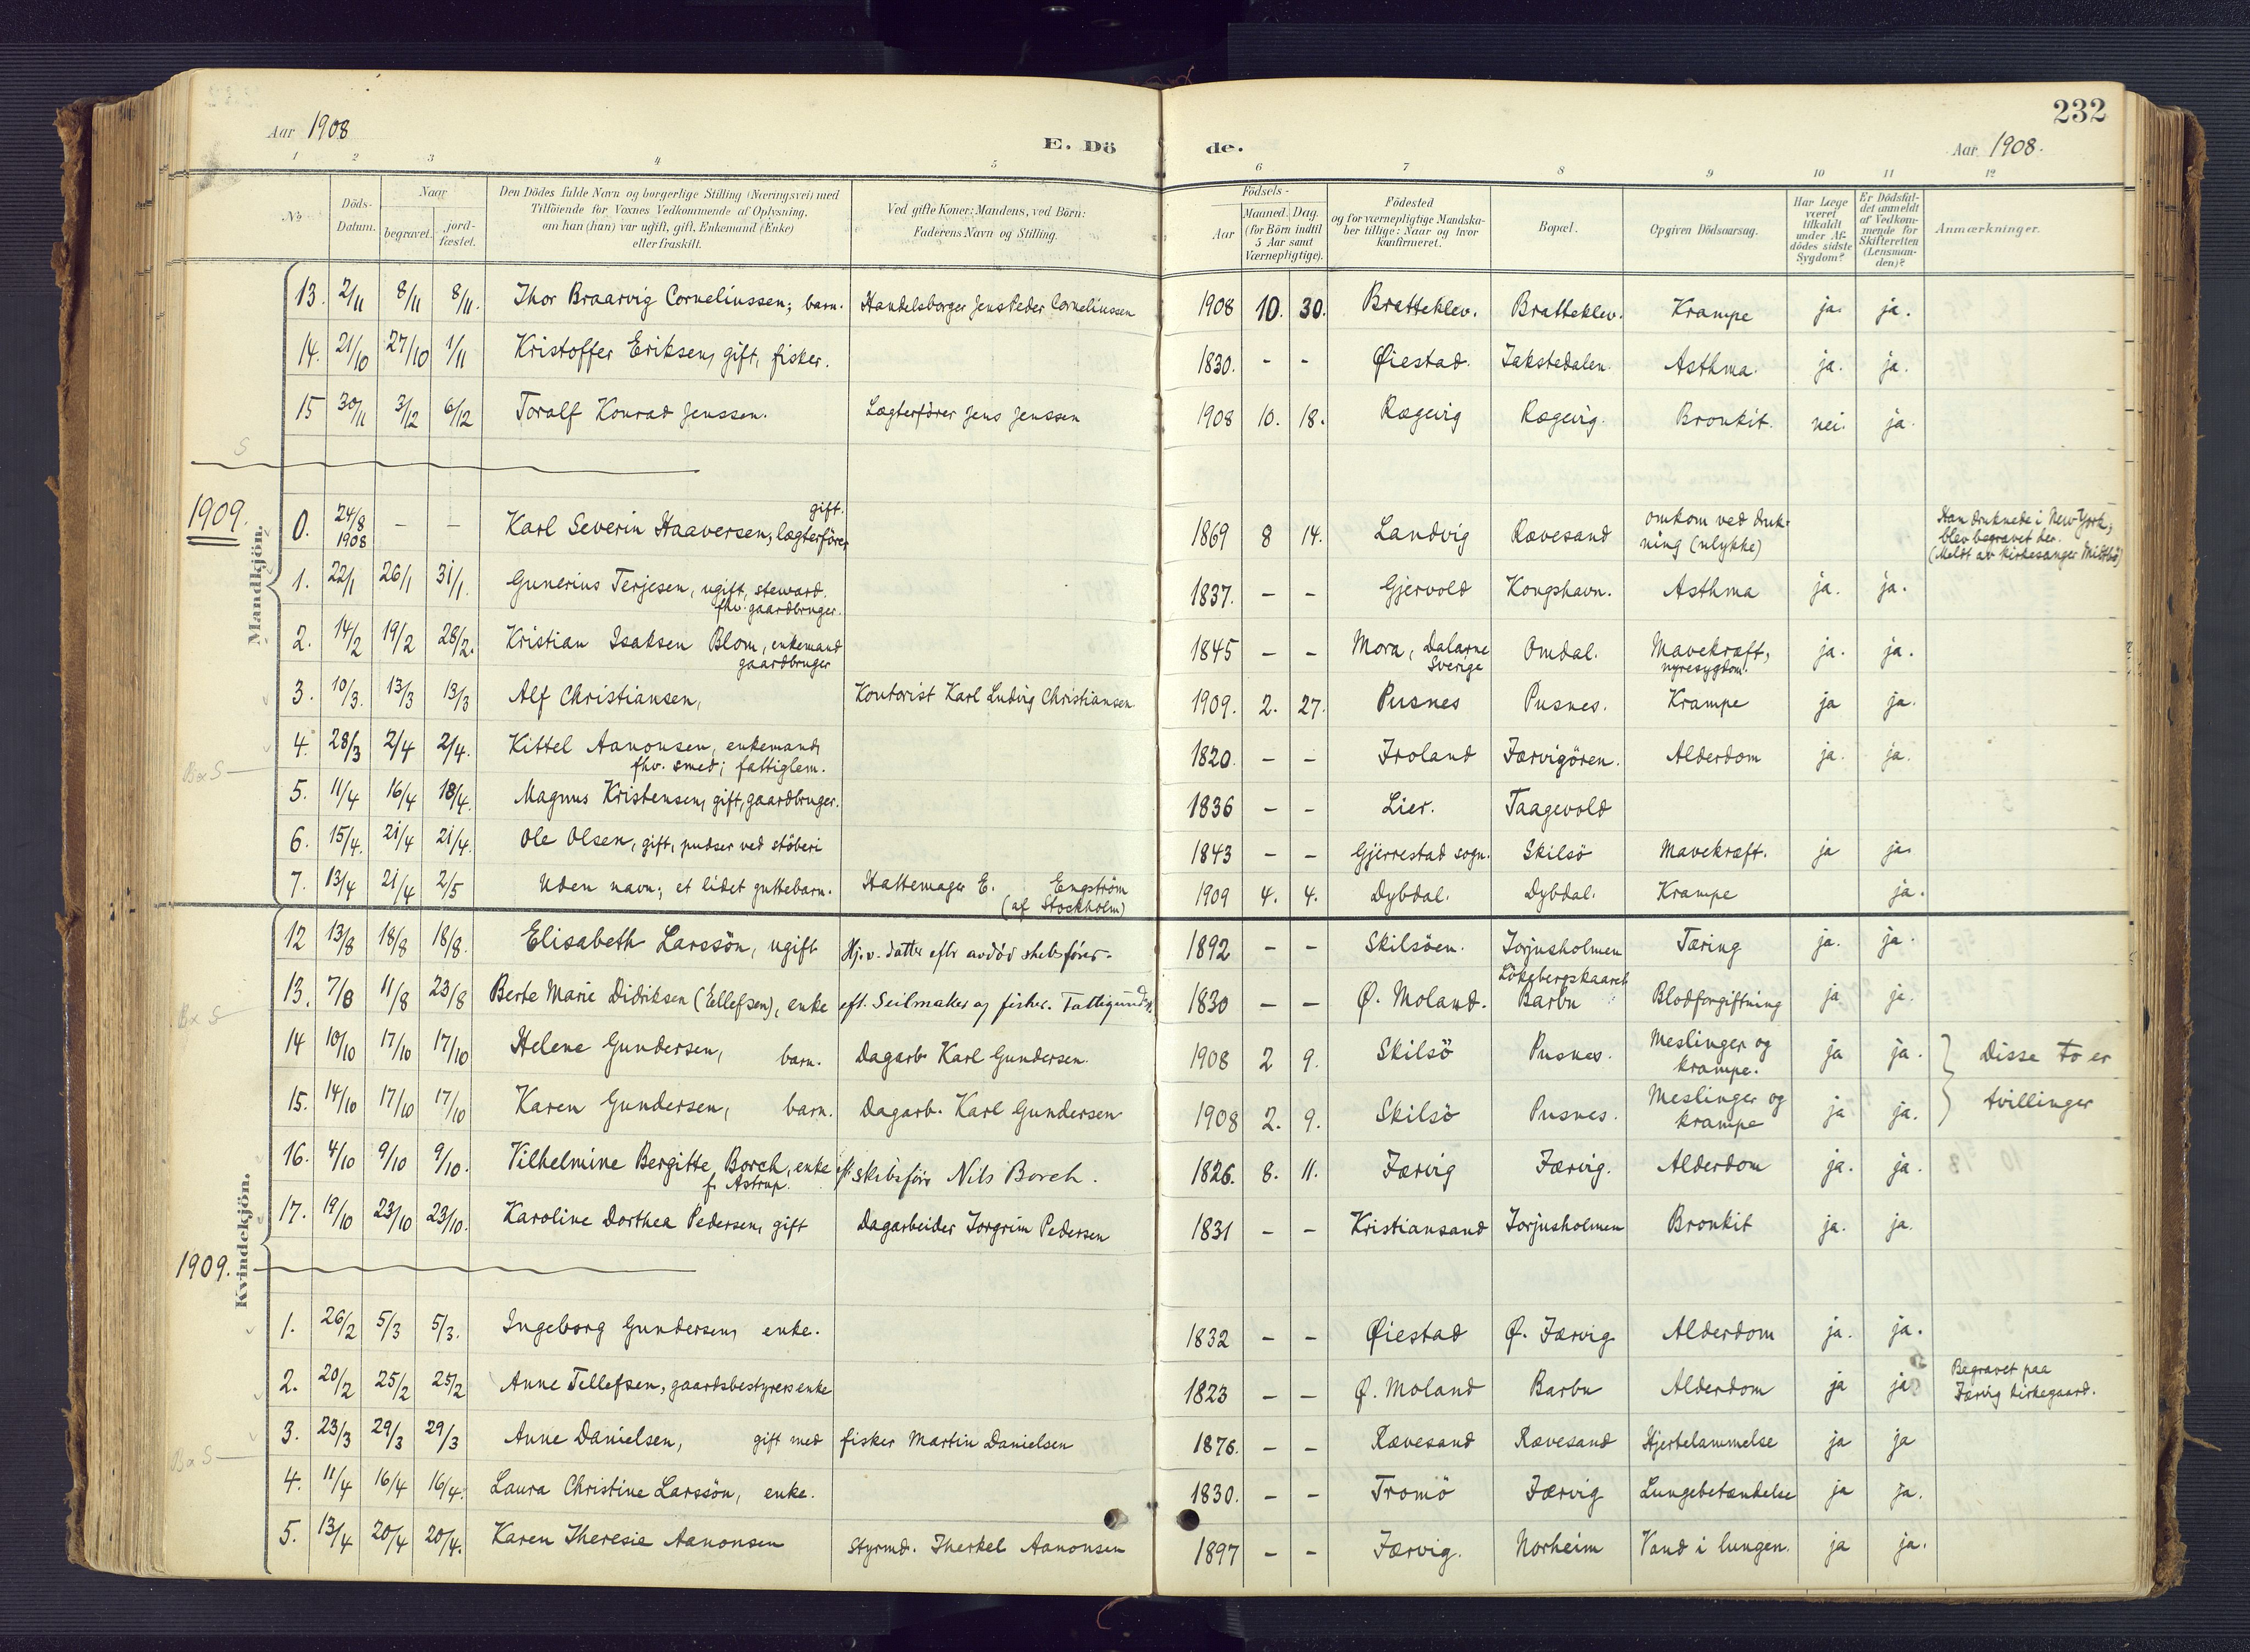 232
Aar 1908
E. Dö
de.
Aar 1908.
1 2 3 4 5 6 7 8 9 10 11 12
No
Döds-Datum.
Naar
begravet.
jord-fæstet.
Den Dödes fulde Navn og borgerlige Stilling (Næringsvei) med
Tilföiende for Voxnes Vedkommende af Oplysning,
om han (hun) var ugift, gift, Enkemand (Enke)
eller fraskilt.
Ved gifte Koner: Mandens, ved Börn:
Faderens Navn og Stilling.
Födsels-
Aar
Maaned. Dag.
(for Börn indtil
5 Aar samt
Værnepligtige).
Födested
og for værnepligtige Mandska-
ber tillige: Naar og hvor
konfirmeret.
Bopæl.
Opgiven Dödsaarsag.
Har Læge
været
tilkaldt
under Af-
dödes sidste
Sygdom?
Er Dödsfal-
det anmeldt
af Vedkom-
mende for
Skifteretten
(Lensman-
den)?
Anmærkninger.
Mandkjön.
13. 2/11 8/11 8/11. Thor Braarvig Corneliussen; barn. Handelsborger Jens Peder Corneliussen 1908 10. 30. Bratteklev. Bratteklev. Krampe ja. ja.
14. 21/10 27/10 1/11 Kristoffer Eriksen, gift, fisker. 1830. - - Øiestad. Jakstedalen. Asthma. ja. ja.
15 30/11 3/12 6/12 Toralf Konrad Jenssen. Lægterförer Jens Jenssen 1908 10. 18. Rægevig Rægevig. Bronkit. nei. ja.
S
1909.
0. 24/8 1908 - - Karl Severin Haaversen, lægterförer gift. 1869 8 14. Landvig Rævesand omkom ved druk-
ning (ulykke) Han druknede i New York,
blev begravet der.
(Meldt av kirkesanger Miltbö)
1. 22/1 26/1 31/1. Gunerius Terjesen, ugift, steward.
fhv. gaardbruger. 1837. - - Gjervold Kongshavn. Asthma ja. ja.
2. 14/2 19/2 28/2. Kristian Isaksen Blom, enkemand
gaardbruger 1845 - - Mora, Dalarne
Sverige Omdal. Mavekræft,
nyresygdom. ja. ja.
3. 10/3. 13/3 13/3 Alf Christiansen, Kontorist Karl Ludvig Christiansen 1909. 2. 27. Pusnes Pusnes. Krampe ja ja.
4. 28/3 2/4 2/4. Kittel Aanonsen, enkemand,
fhv. smed; fattiglem. 1820. - - Froland Færvigören. Alderdom ja. ja.
BxS
5. 11/4 16/4 18/4. Magnus Kristensen, gift, gaardbruger. 1836 - - Lier. Taagevold
6. 15/4. 21/4 21/4. Ole Olsen, gift, pudser ved stöberi 1843 - - Gjerrestad sogn. Skilsö Mavekræft. ja ja.
7. 13/4 21/4 2/5 Uden navn; et lidet guttebarn. Hattemager E. Engström
(af Stockholm) 1909 4. 4. Dybdal. Dybdal. Krampe ja.
Kvindekjön.
12 13/8 18/8 18/8. Elisabeth Larssön, ugift Hj.v. datter efter avdöd skibsförer. 1892 - - Skilsöen. Torjusholmen Tæring ja. ja.
13. 7/8 11/8 23/8 Berte Marie Didriksen (Ellefsen), enke eft. Seilmaker og fisker. 1830 - - Ø. Moland. Lökebergskaaret
Barbu Blodforgiftning ja ja.
Bx S
14 10/10 17/10 17/10 Helene Gundersen, barn. Dagarb. Karl Gundersen. 1908 2 9. Skilsö Pusnes. Meslinger og
krampe. ja ja. Disse to er
15. 14/10 17/10 17/10 Karen Gundersen, barn. Dagarb. Karl Gundersen 1908 2. 9. Skilsö Pusnes. Meslinger og
krampe ja ja. tvillinger
16. 4/10 9/10 9/10. Vilhelmine Bergitte Borch, enke
f. Astrup. eft. skibsförer Nils Borch. 1826. 8. 11. Færvig Færvig. Alderdom ja. ja.
17. 19/10 23/10 23/10. Karoline Dorthea Pedersen, gift Dagarbeider Torgrim Pedersen 1831 - - Kristiansand Torjusholmen Bronkit ja. ja.
1909.
1. 26/2 5/3 5/3. Ingeborg Gundersen, enke. 1832 - - Øiestad Ø. Færvig Alderdom ja. ja.
2. 20/2 25/2 25/2 Anne Tellefsen, gaardsbestyrers enke 1823 - - Ø. Moland Barbu Alderdom ja ja Begravet paa
Færvig kirkegaard.
3. 23/3 29/3 29/3 Anne Danielsen, gift med fisker Martin Danielsen 1876. - - Rævesand Rævesand Hjertelammelse ja ja
BxS
4. 11/4 16/4 16/4. Laura Christine Larssön, enke. 1830. - - Tromö Færvig Lungebetændelse ja ja.
5. 13/4 20/4 20/4. Karen Theresie Aanonsen Styrmd. Therkel Aanonsen 1897 - - Færvig. Norheim Vand i lungen. ja ja.